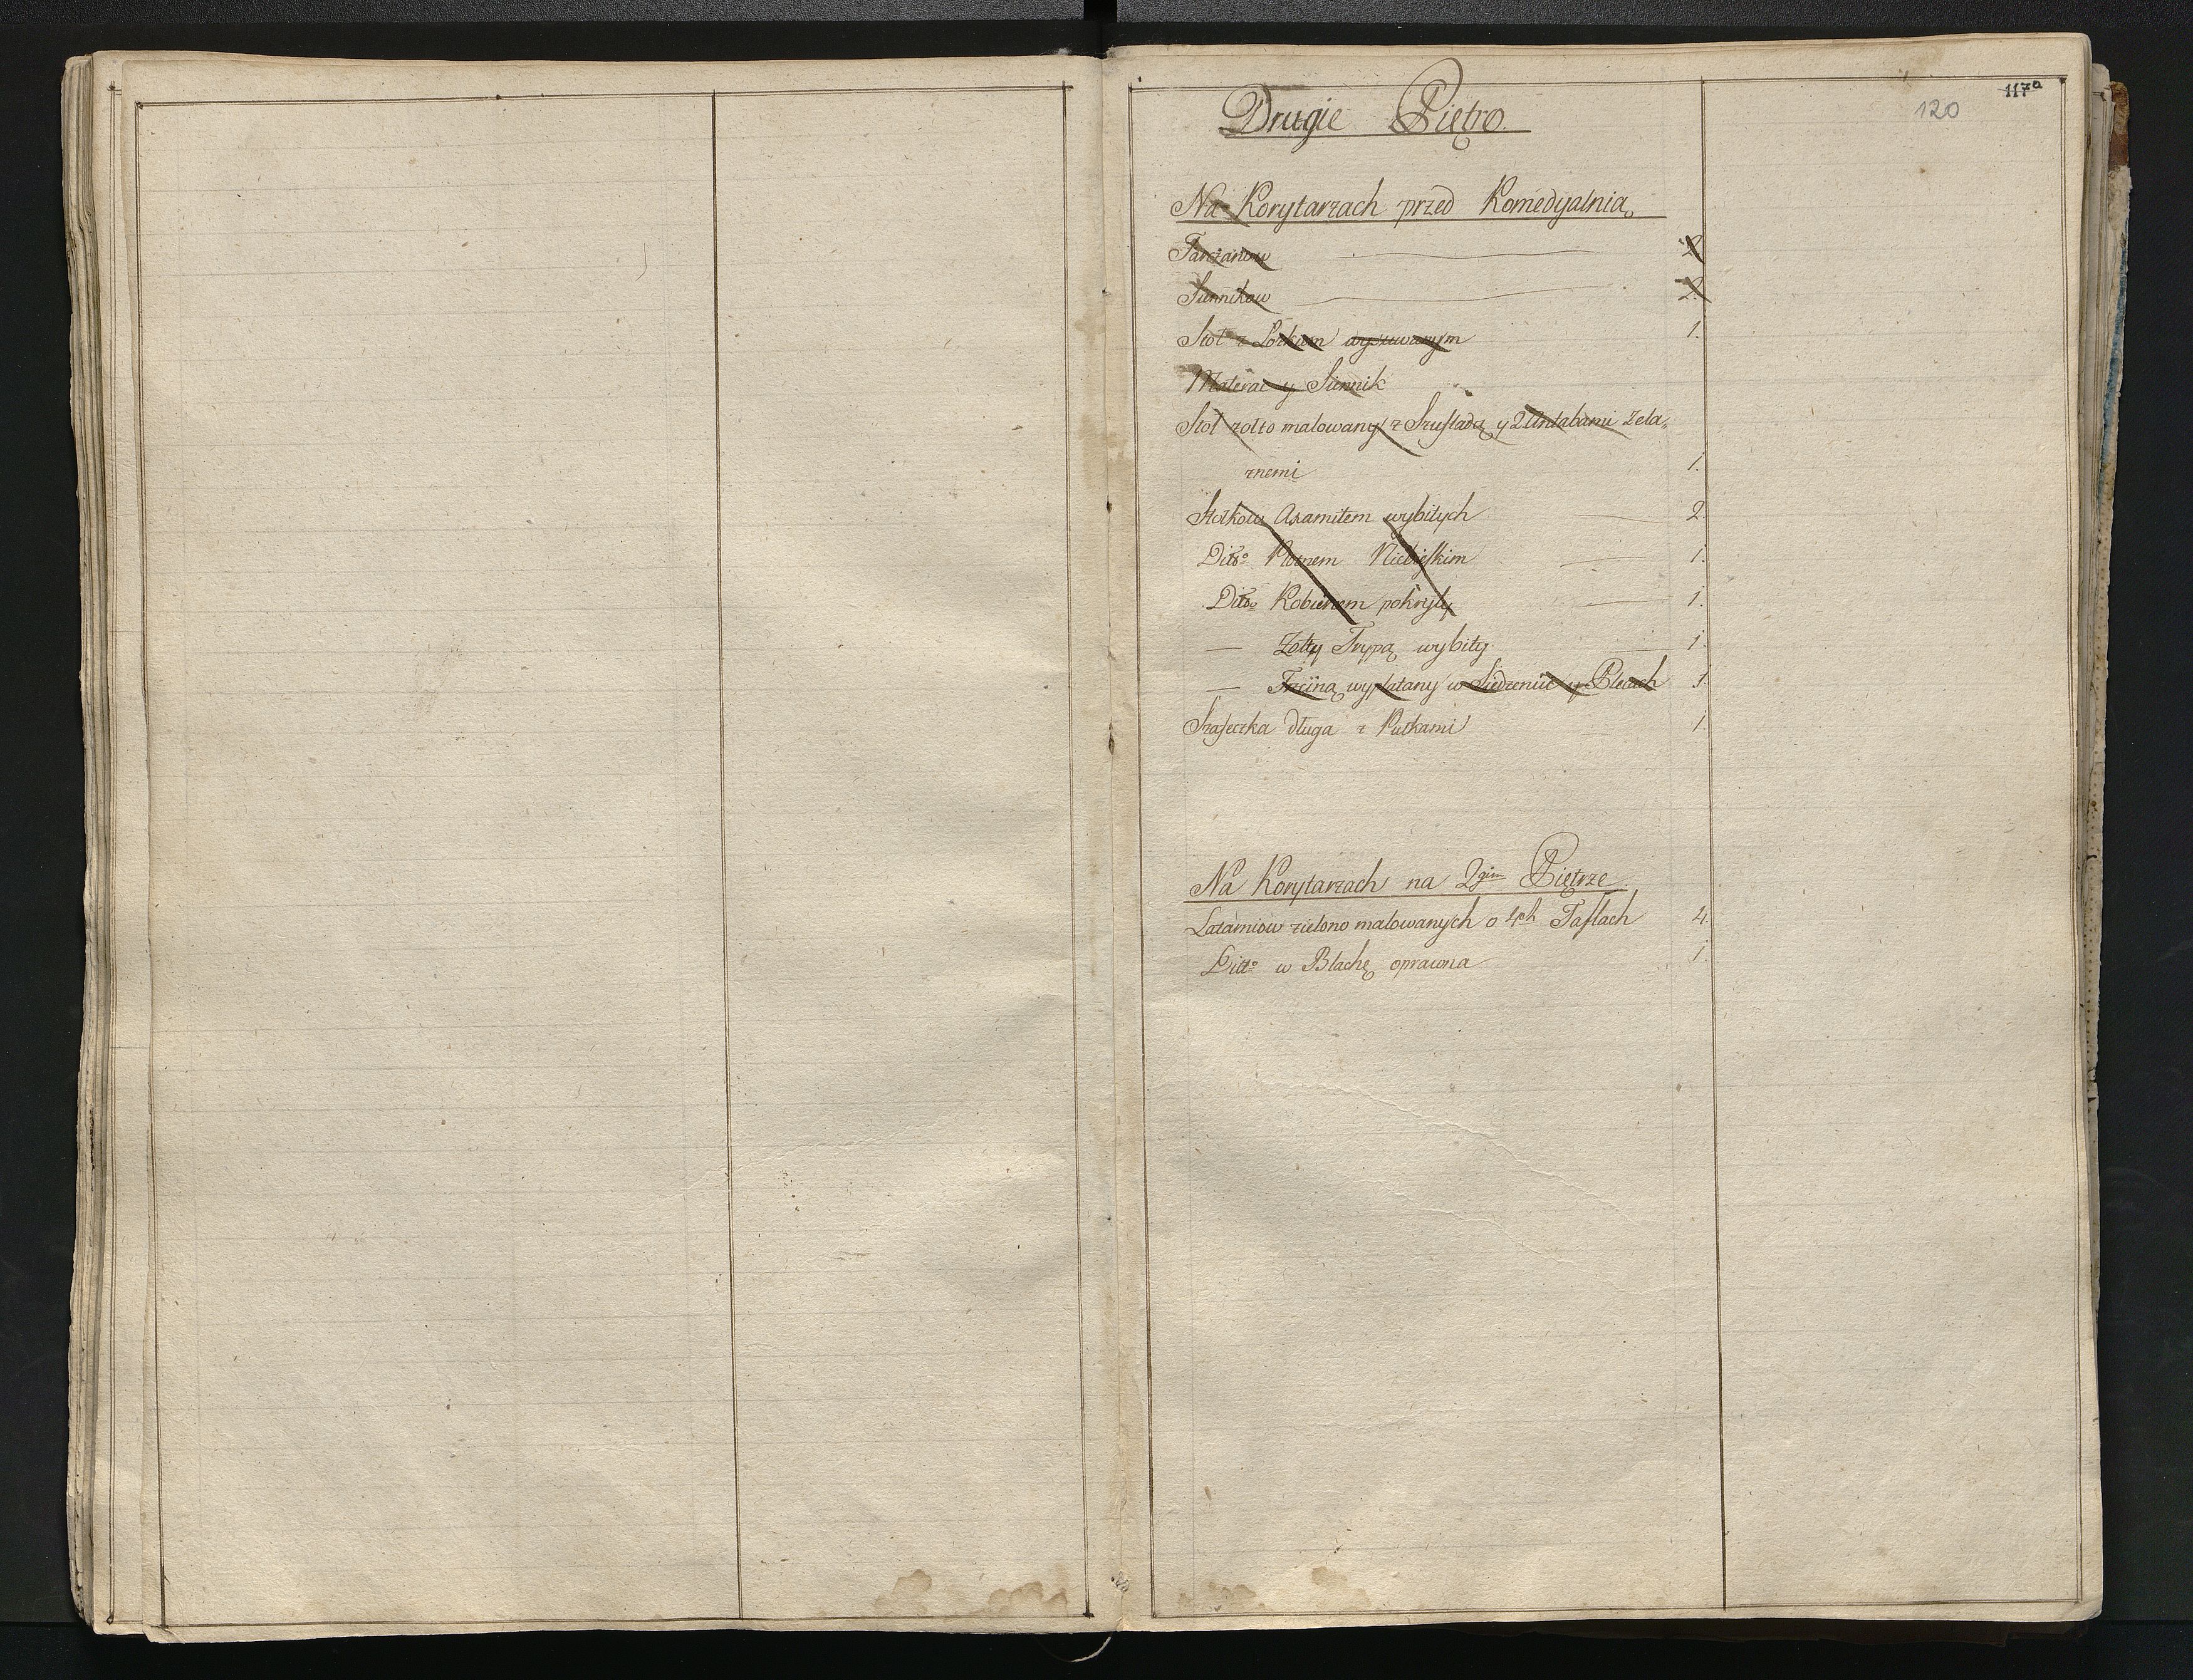 117a
120
Drugie Piętro.
Na Korytarzach przed Komedyalnią
Tarczanow 2
Siennikow 2.
Stoł z Łożkiem wysuwanym 1.
Materac y Siennik
Stoł zołto malowany z Szufladą y 2 Antabami Zela„
znemi 1.
Stołkow Axamitem wybitych 2.
Ditto Płotnem Niebieskim 1.
Ditto Kobiercem pokryty 1.
— Zołtą Trypą wybity 1.
— Trzciną wyplatany w Siedzeniu y Plecach 1.
Szafeczka długa z Pułkami 1.
Na Korytarzach na 2gim Piętrze
Latarniow zielono malowanych o 4ch Taflach 4.
Ditto w Blachę oprawna 1